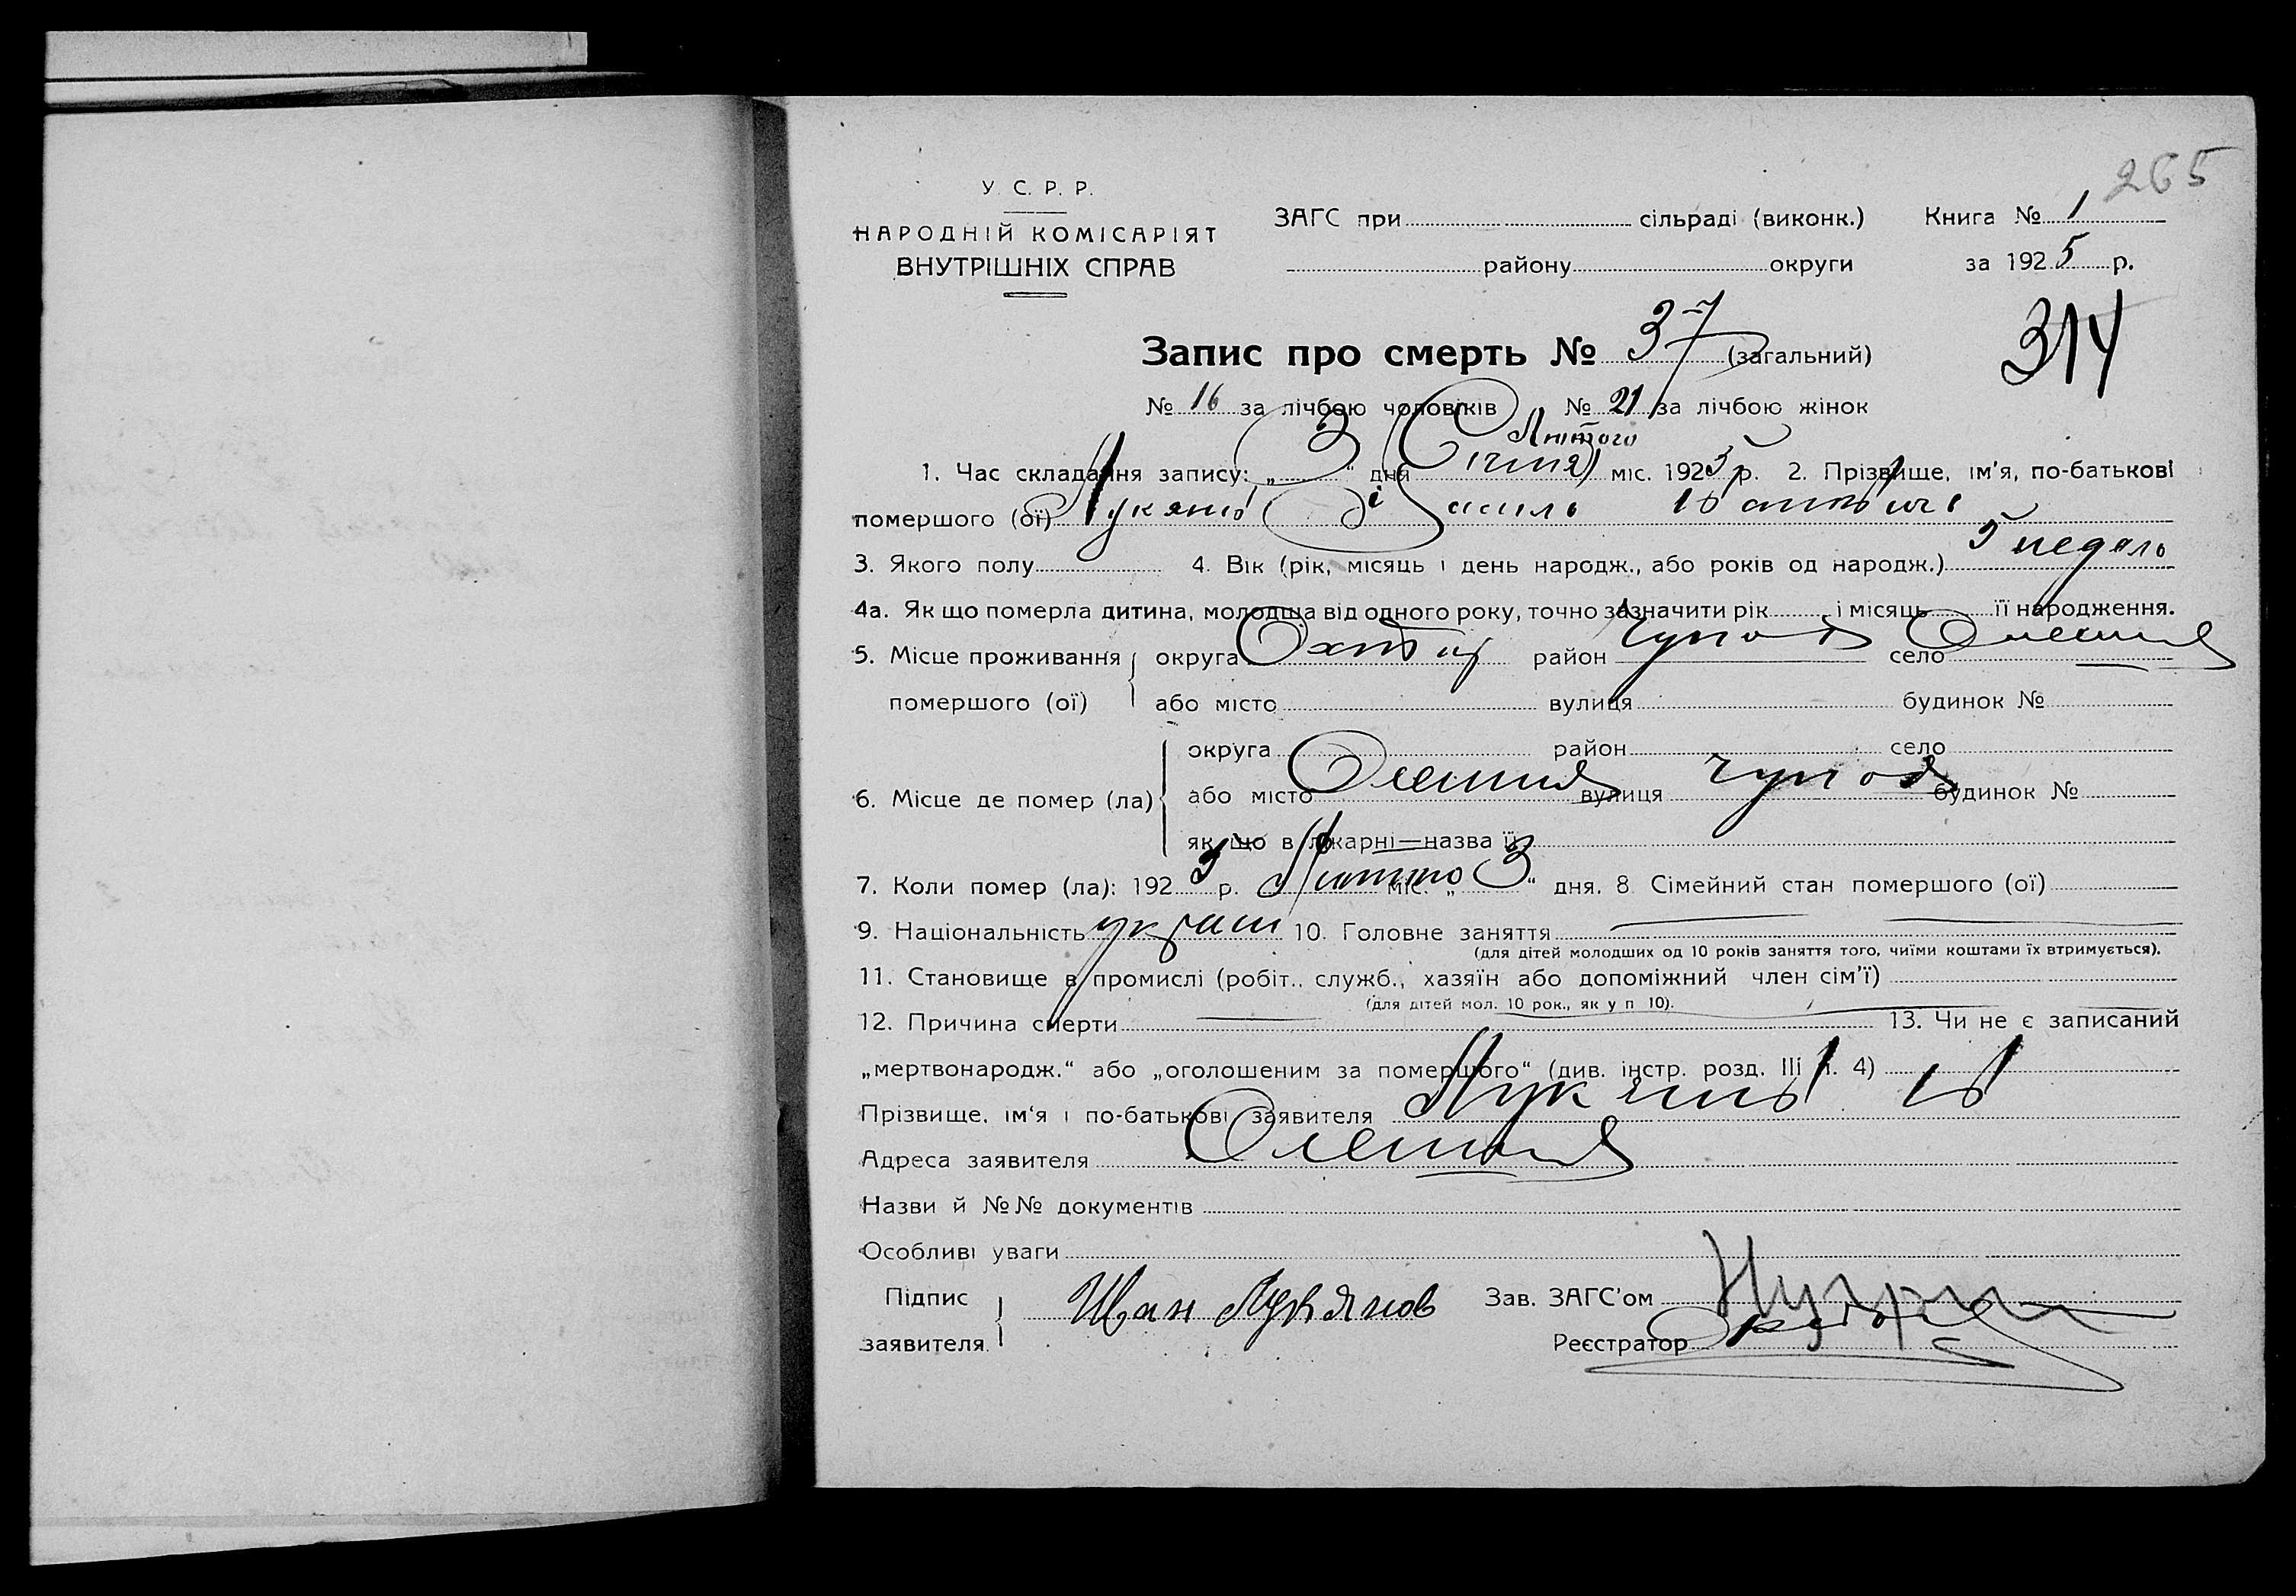 265
У. С. Р. Р.
НАРОДНІЙ КОМІСАРІЯТ
ВНУТРІШНІХ СПРАВ
ЗАГС при сільраді (виконк.)
району округи
Книга № 1
за 1925 р.
314
Запис про смерть № 37 (загальний)
№ 16 за лічбою чоловіків № 21 за лічбою жінок
Лютого
1. Час складання запису: „3“ дня Січня міс. 1925 р. 2. Прізвище, ім'я, по-батькові
помершого (ої)
3. Якого полу 4. Вік (рік, місяць і день народж., або років од народж.) 5 недель
4а. Як що померла дитина, молодща від одного року, точно зазначити рік і місяць її народження.
5. Місце проживання округа Охтир район село
помершого (ої) або місто вулиця будинок №
округа район село
6. Місце де помер (ла) або місто вулиця будинок №
як що в лікарні—назва її
7. Коли помер (ла): 1925 р. міс. „3“ дня. 8 Сімейний стан помершого (ої)
9. Національність україн 10. Головне заняття
(для дітей молодших од 10 років заняття того, чиїми коштами їх втримується).
11. Становище в промислі (робіт., служб., хазяїн або допоміжний член сім'ї)
(для дітей мол. 10 рок., як у п 10).
12. Причина смерти 13. Чи не є записаний
„мертвонародж.“ або „оголошеним за помершого“ (див. інстр. розд. III п. 4)
Прізвище, ім'я і по-батькові заявителя
Адреса заявителя
Назви й №№ документів
Особливі уваги
Підпис
заявителя
Иван Лукянов
Зав. ЗАГС'ом
Реєстратор